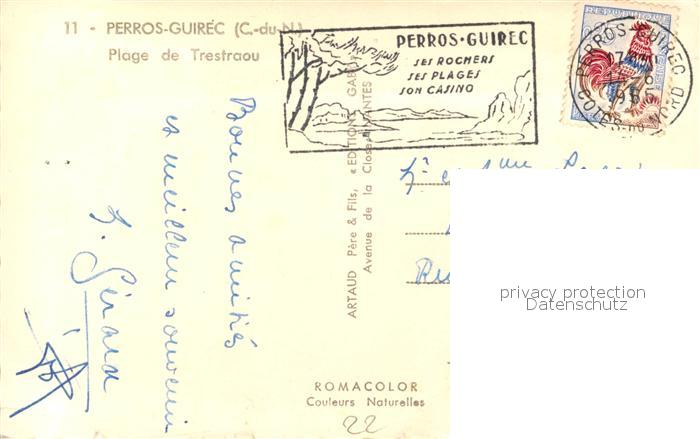 11 - PERROS-GUIREC (C.-du-N.)
Plage de Trestraou
PERROS-GUIREC
SES ROCHERS
SES PLAGES
SON CASINO
PERROS-GUIREC
COTES-DU-NORD
Bonnes amitiés
et meilleur souvenir
Gérard
ARTAUD Père & Fils, « EDITIONS GABY »
Avenue de la Close NANTES
privacy protection
Datenschutz
ROMACOLOR
Couleurs Naturelles
22